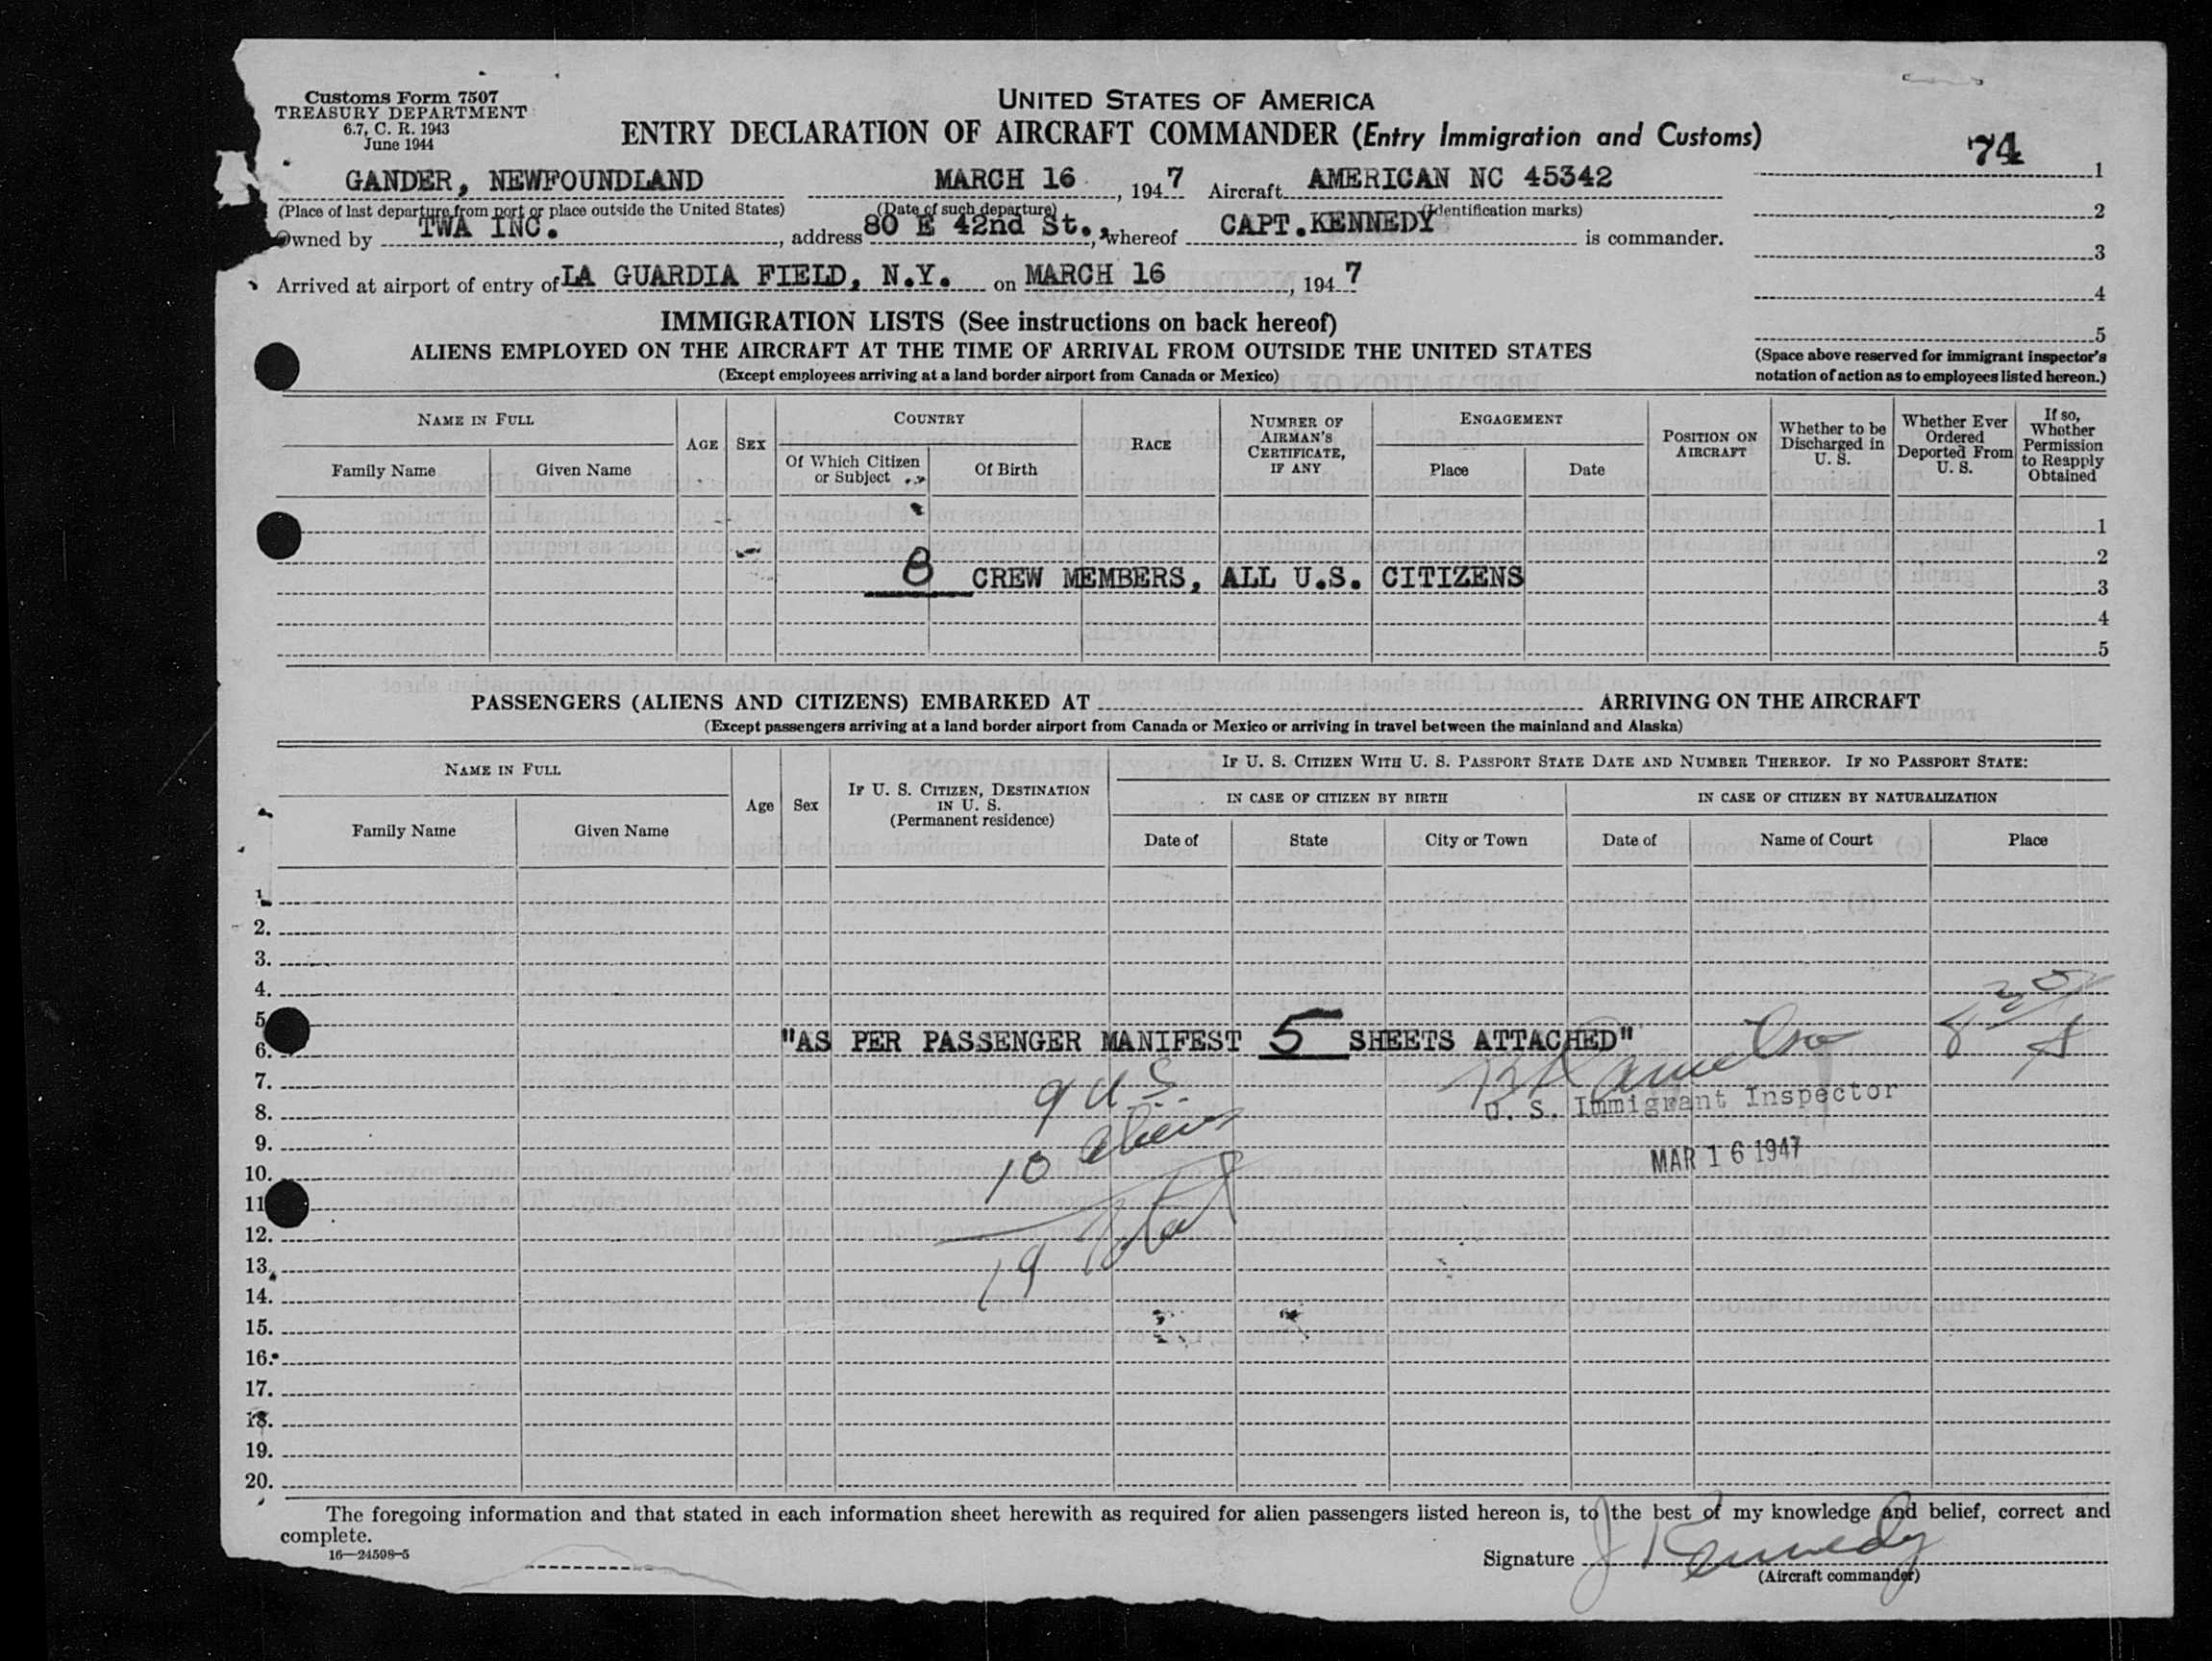 Customs Form 7507
TREASURY DEPARTMENT
6.7, C. R. 1943
June 1944
UNITED STATES OF AMERICA
ENTRY DECLARATION OF AIRCRAFT COMMANDER (Entry Immigration and Customs)
74
GANDER, NEWFOUNDLAND MARCH 16, 1947 Aircraft AMERICAN NC 45342
(Place of last departure from port or place outside the United States) (Date of such departure) (Identification marks)
Owned by TWA INC., address 80 E 42nd St., whereof CAPT. KENNEDY is commander.
Arrived at airport of entry of LA GUARDIA FIELD, N.Y. on MARCH 16, 1947
1
2
3
4
5
(Space above reserved for immigrant inspector's
notation of action as to employees listed hereon.)
IMMIGRATION LISTS (See instructions on back hereof)
ALIENS EMPLOYED ON THE AIRCRAFT AT THE TIME OF ARRIVAL FROM OUTSIDE THE UNITED STATES
(Except employees arriving at a land border airport from Canada or Mexico)
NAME IN FULL
Family Name
Given Name
AGE
SEX
COUNTRY
Of Which Citizen
or Subject
Of Birth
RACE
NUMBER OF
AIRMAN'S
CERTIFICATE,
IF ANY
ENGAGEMENT
Place
Date
POSITION ON
AIRCRAFT
Whether to be
Discharged in
U. S.
Whether Ever
Ordered
Deported From
U. S.
If so,
Whether
Permission
to Reapply
Obtained
1
2
8 CREW MEMBERS, ALL U.S. CITIZENS
3
4
5
PASSENGERS (ALIENS AND CITIZENS) EMBARKED AT ARRIVING ON THE AIRCRAFT
(Except passengers arriving at a land border airport from Canada or Mexico or arriving in travel between the mainland and Alaska)
NAME IN FULL
Family Name
Given Name
Age
Sex
IF U. S. CITIZEN, DESTINATION
IN U. S.
(Permanent residence)
IF U. S. CITIZEN WITH U. S. PASSPORT STATE DATE AND NUMBER THEREOF. IF NO PASSPORT STATE:
IN CASE OF CITIZEN BY BIRTH
IN CASE OF CITIZEN BY NATURALIZATION
Date of
State
City or Town
Date of
Name of Court
Place
1.
2.
3.
4.
5.
6. "AS PER PASSENGER MANIFEST 5 SHEETS ATTACHED"
7. 9 U.S.
8. U. S. Immigrant Inspector
9. 10 aliens
MAR 16 1947
10.
11
12. 19 total
13.
14.
15.
16.
17.
18.
19.
20.
The foregoing information and that stated in each information sheet herewith as required for alien passengers listed hereon is, to the best of my knowledge and belief, correct and
complete.
16—24598-5
Signature J Kennedy
(Aircraft commander)